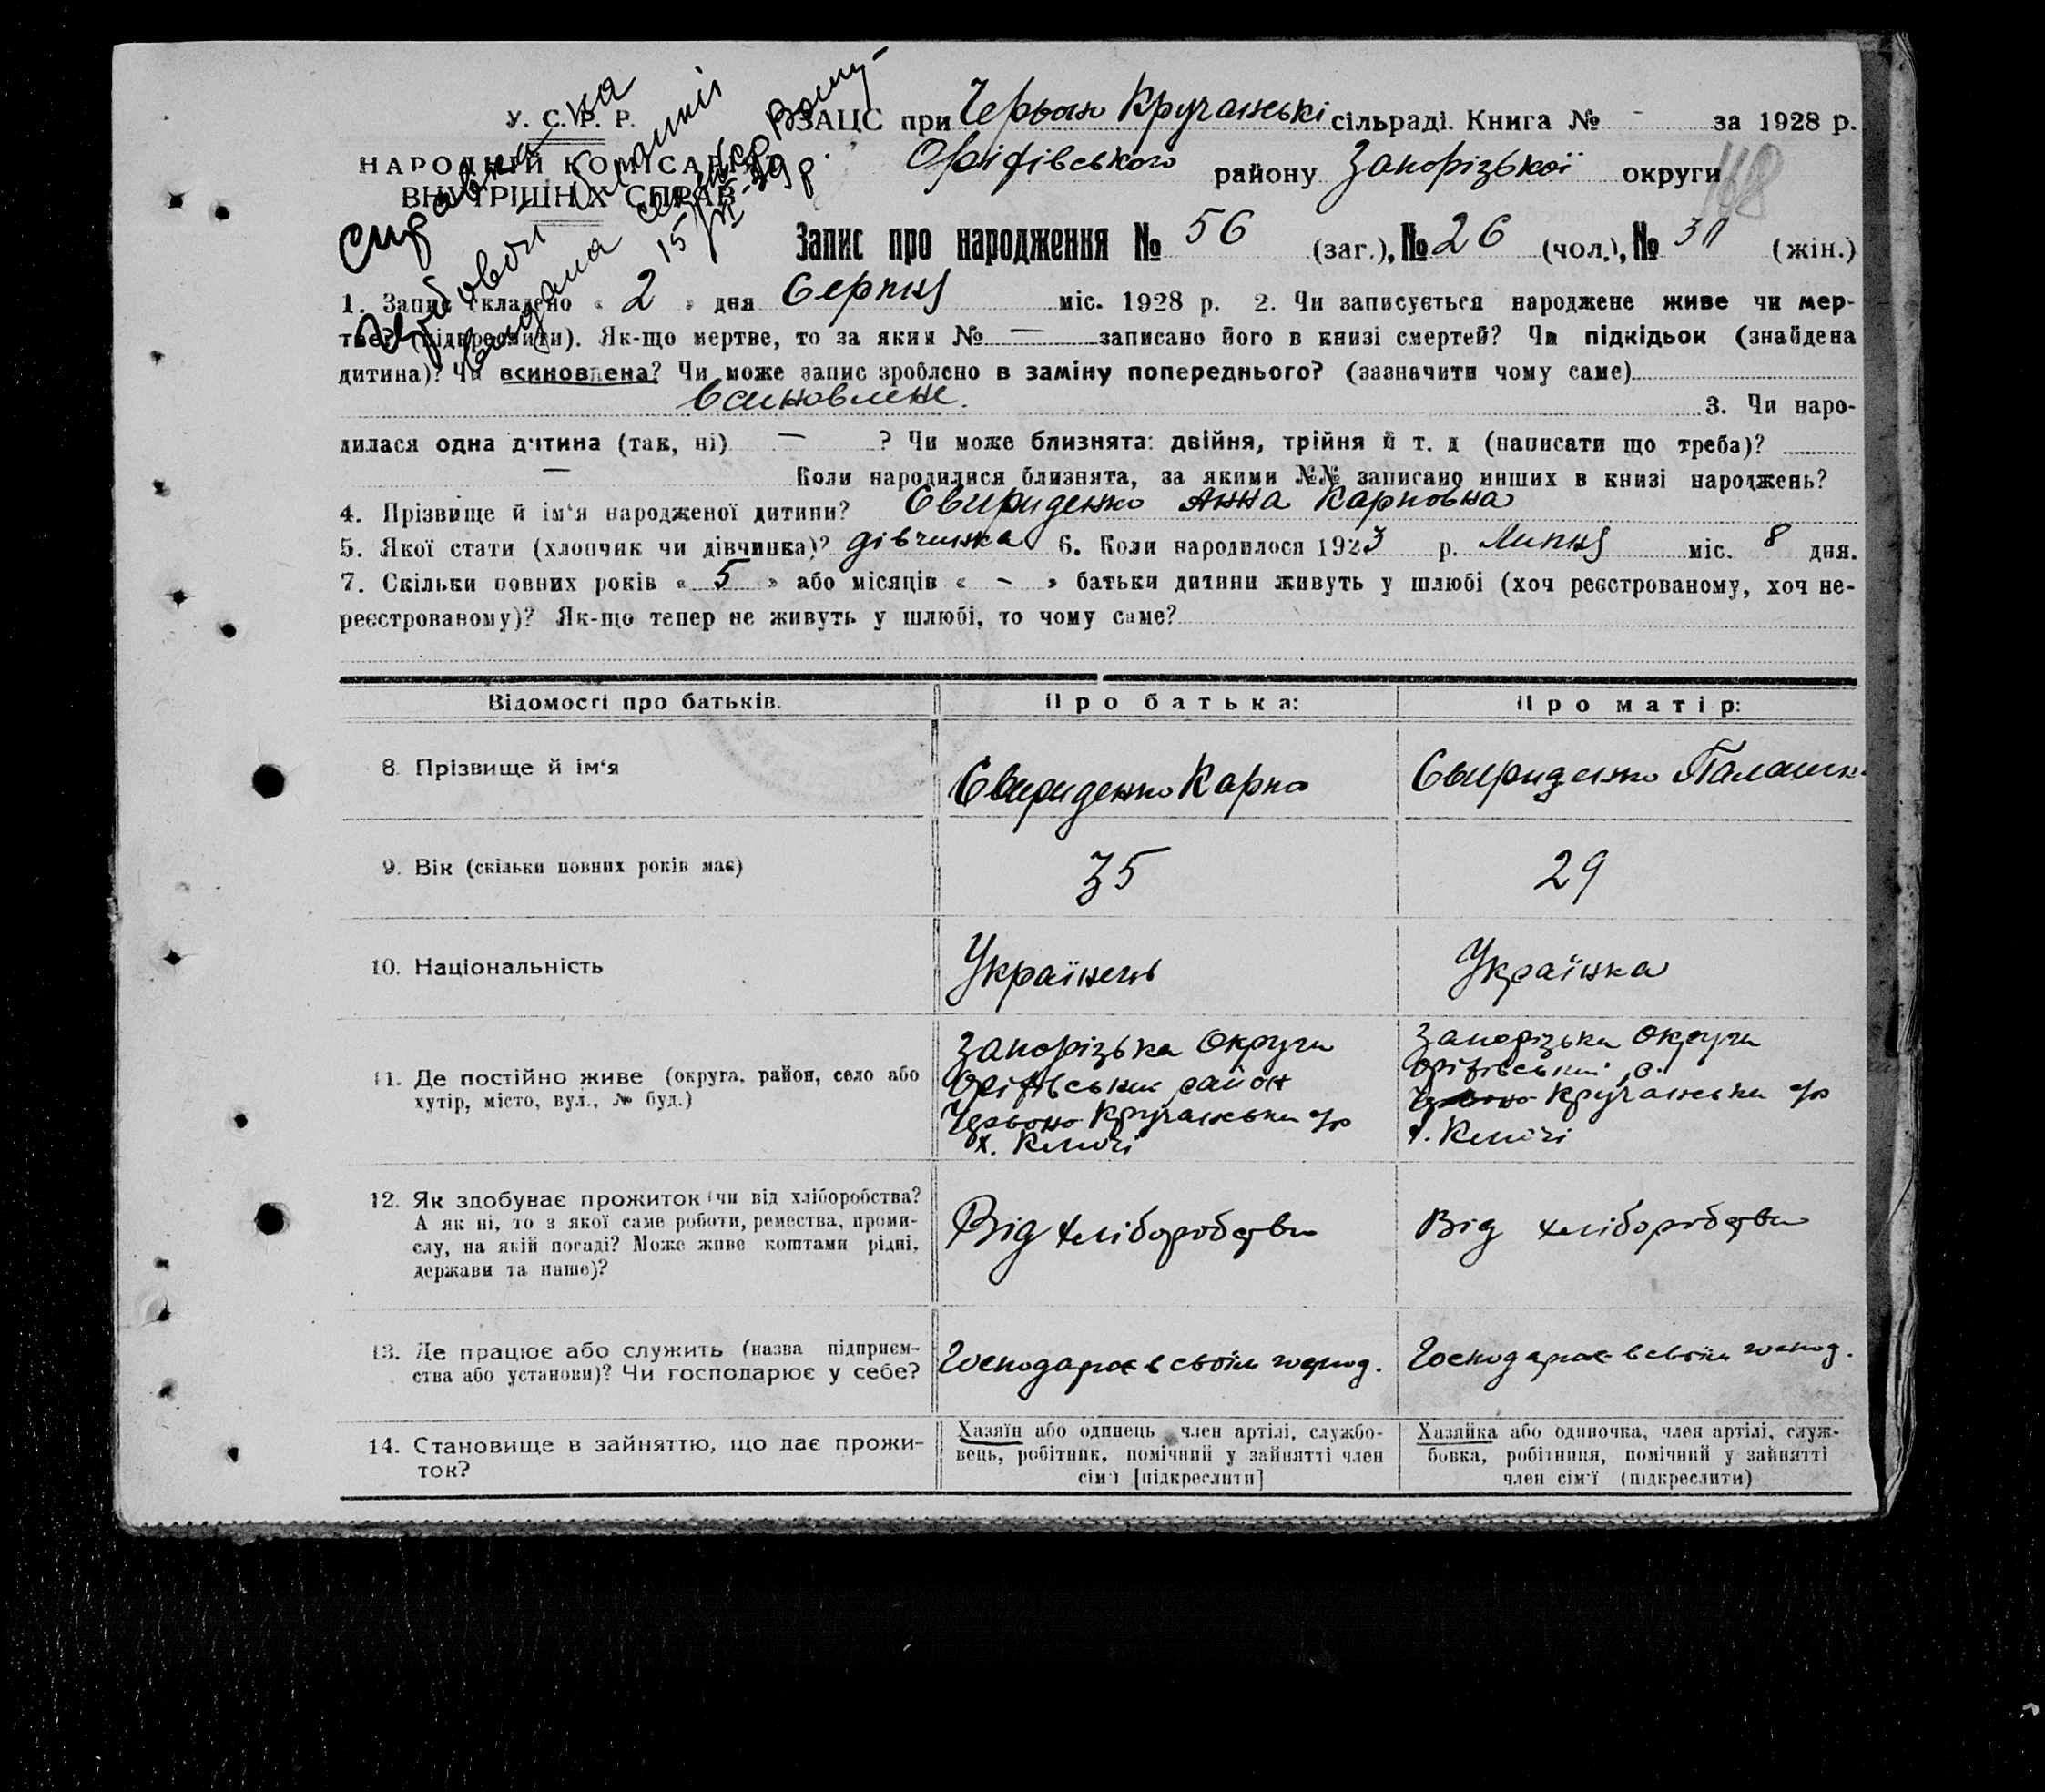 У. С. Р. Р.
НАРОДНІЙ КОМІСАРІЯТ
ВНУТРІШНІХ СПРАВ
ЗАЦС при Червоно Кручанські сільраді. Книга № - за 1928 р.
Оріхівського району Запорізької округи
168
Запис про народження № 56 (заг.), № 26 (чол.), № 30 (жін.)
Справка на
видана
15/IX-39 р.
1. Запис складено « 2 » дня Серпня міс. 1928 р. 2. Чи записується народжене живе чи мер-
тве? (підкреслити). Як-що мертве, то за яким № — записано його в книзі смертей? Чи підкідьок (знайдена
дитина)? Чи всиновлена? Чи може запис зроблено в заміну попереднього? (зазначити чому саме)
Всиновлене. 3. Чи наро-
дилася одна дитина (так, ні) — ? Чи може близнята: двійня, трійня й т. д (написати що треба)?
— Коли народилися близнята, за якими №№ записано инших в книзі народжень?
4. Прізвище й ім‘я народженої дитини? Свириденко Анна Карповна
5. Якої стати (хлопчик чи дівчинка)? дівчинка 6. Коли народилося 1923 р. Липня міс. 8 дня.
7. Скільки повних років « 5 » або місяців « - » батьки дитини живуть у шлюбі (хоч реєстрованому, хоч не-
реєстрованому)? Як-що тепер не живуть у шлюбі, то чому саме?
Відомості про батьків. Про батька: Про матір:
8. Прізвище й ім‘я Свириденко Карпо Свириденко Палашк
9. Вік (скільки повних років має) 35 29
10. Національність Українець Українка
11. Де постійно живе (округа, район, село або
хутір, місто, вул., № буд.)
Запорізька Округи
Оріхівський район
Червоно Кручанська с/р
х. Ключі
Запорізька Округи
Оріхівський р.
Червоно Кручанська с/р
х. Ключі
12. Як здобуває прожиток (чи від хліборобства?
А як ні, то з якої саме роботи, ремества, проми-
слу, на якій посаді? Може живе коштами рідні,
держави та инше)?
Від хліборобства Від хліборобства
13. Де працює або служить (назва підприєм-
ства або установи)? Чи господарює у себе?
Господарює в своїм господ. Господарює в своїм господ.
14. Становище в зайняттю, що дає прожи-
ток?
Хазяїн або одинець член артілі, службо-
вець, робітник, помічний у зайнятті член
сім‘ї [підкреслити]
Хазяйка або одиночка, член артілі, служ-
бовка, робітниця, помічний у зайнятті
член сім‘ї (підкреслити)